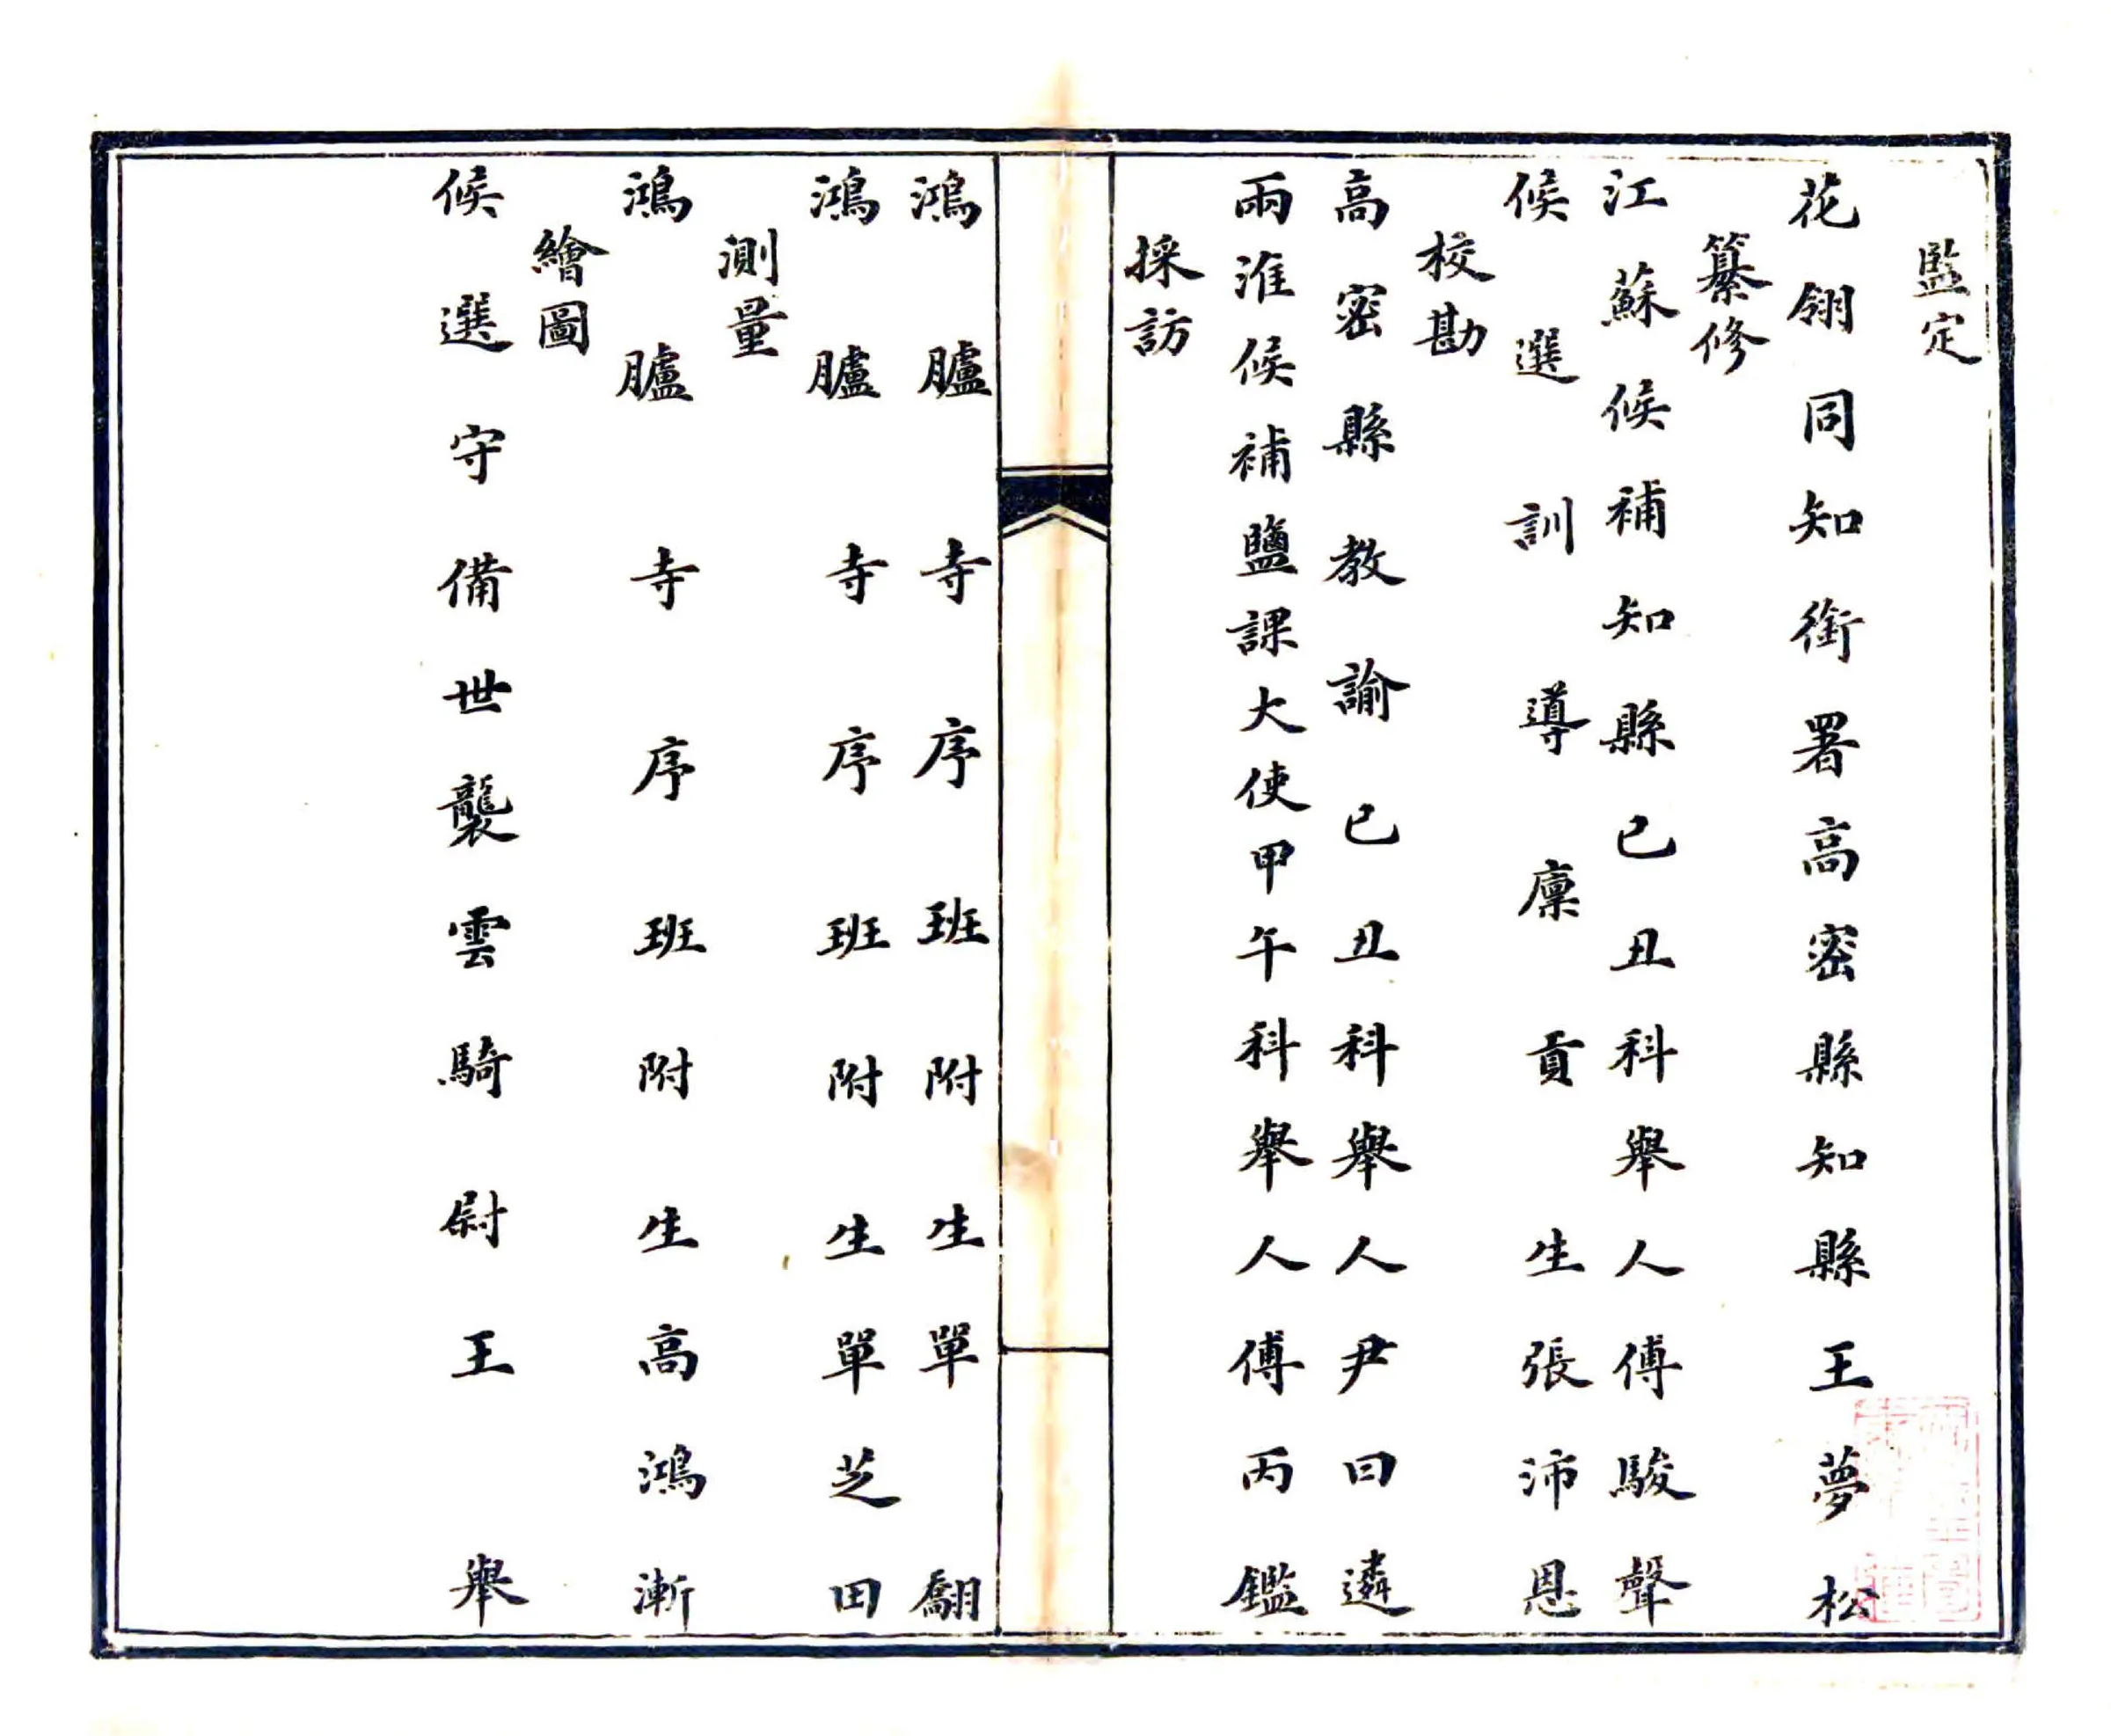 監定
花翎同知銜署高密縣知縣王夢松
纂修
江蘇候補知縣己丑科舉人傅駿聲
候選訓導廩貢生張沛恩
校勘
高密縣教諭己丑科舉人尹曰遴
兩淮候補鹽課大使甲午科舉人傅丙鑑
採訪
鴻臚寺序班附生單翻
鴻臚寺序班附生單芝田
測量
鴻臚寺序班附生高鴻漸
繪圖
候選守備世襲雲騎尉王舉